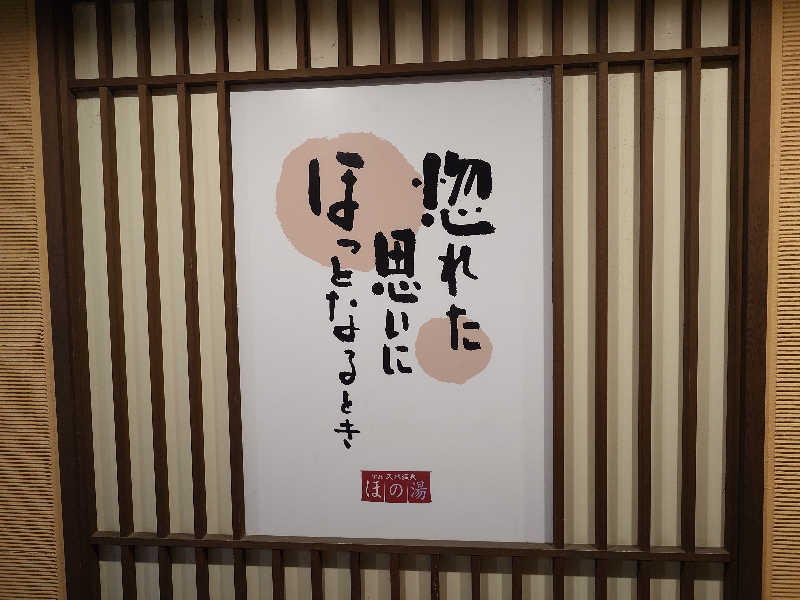 惚れた
思いに
ほっとなるとき
天然温泉
ほの湯